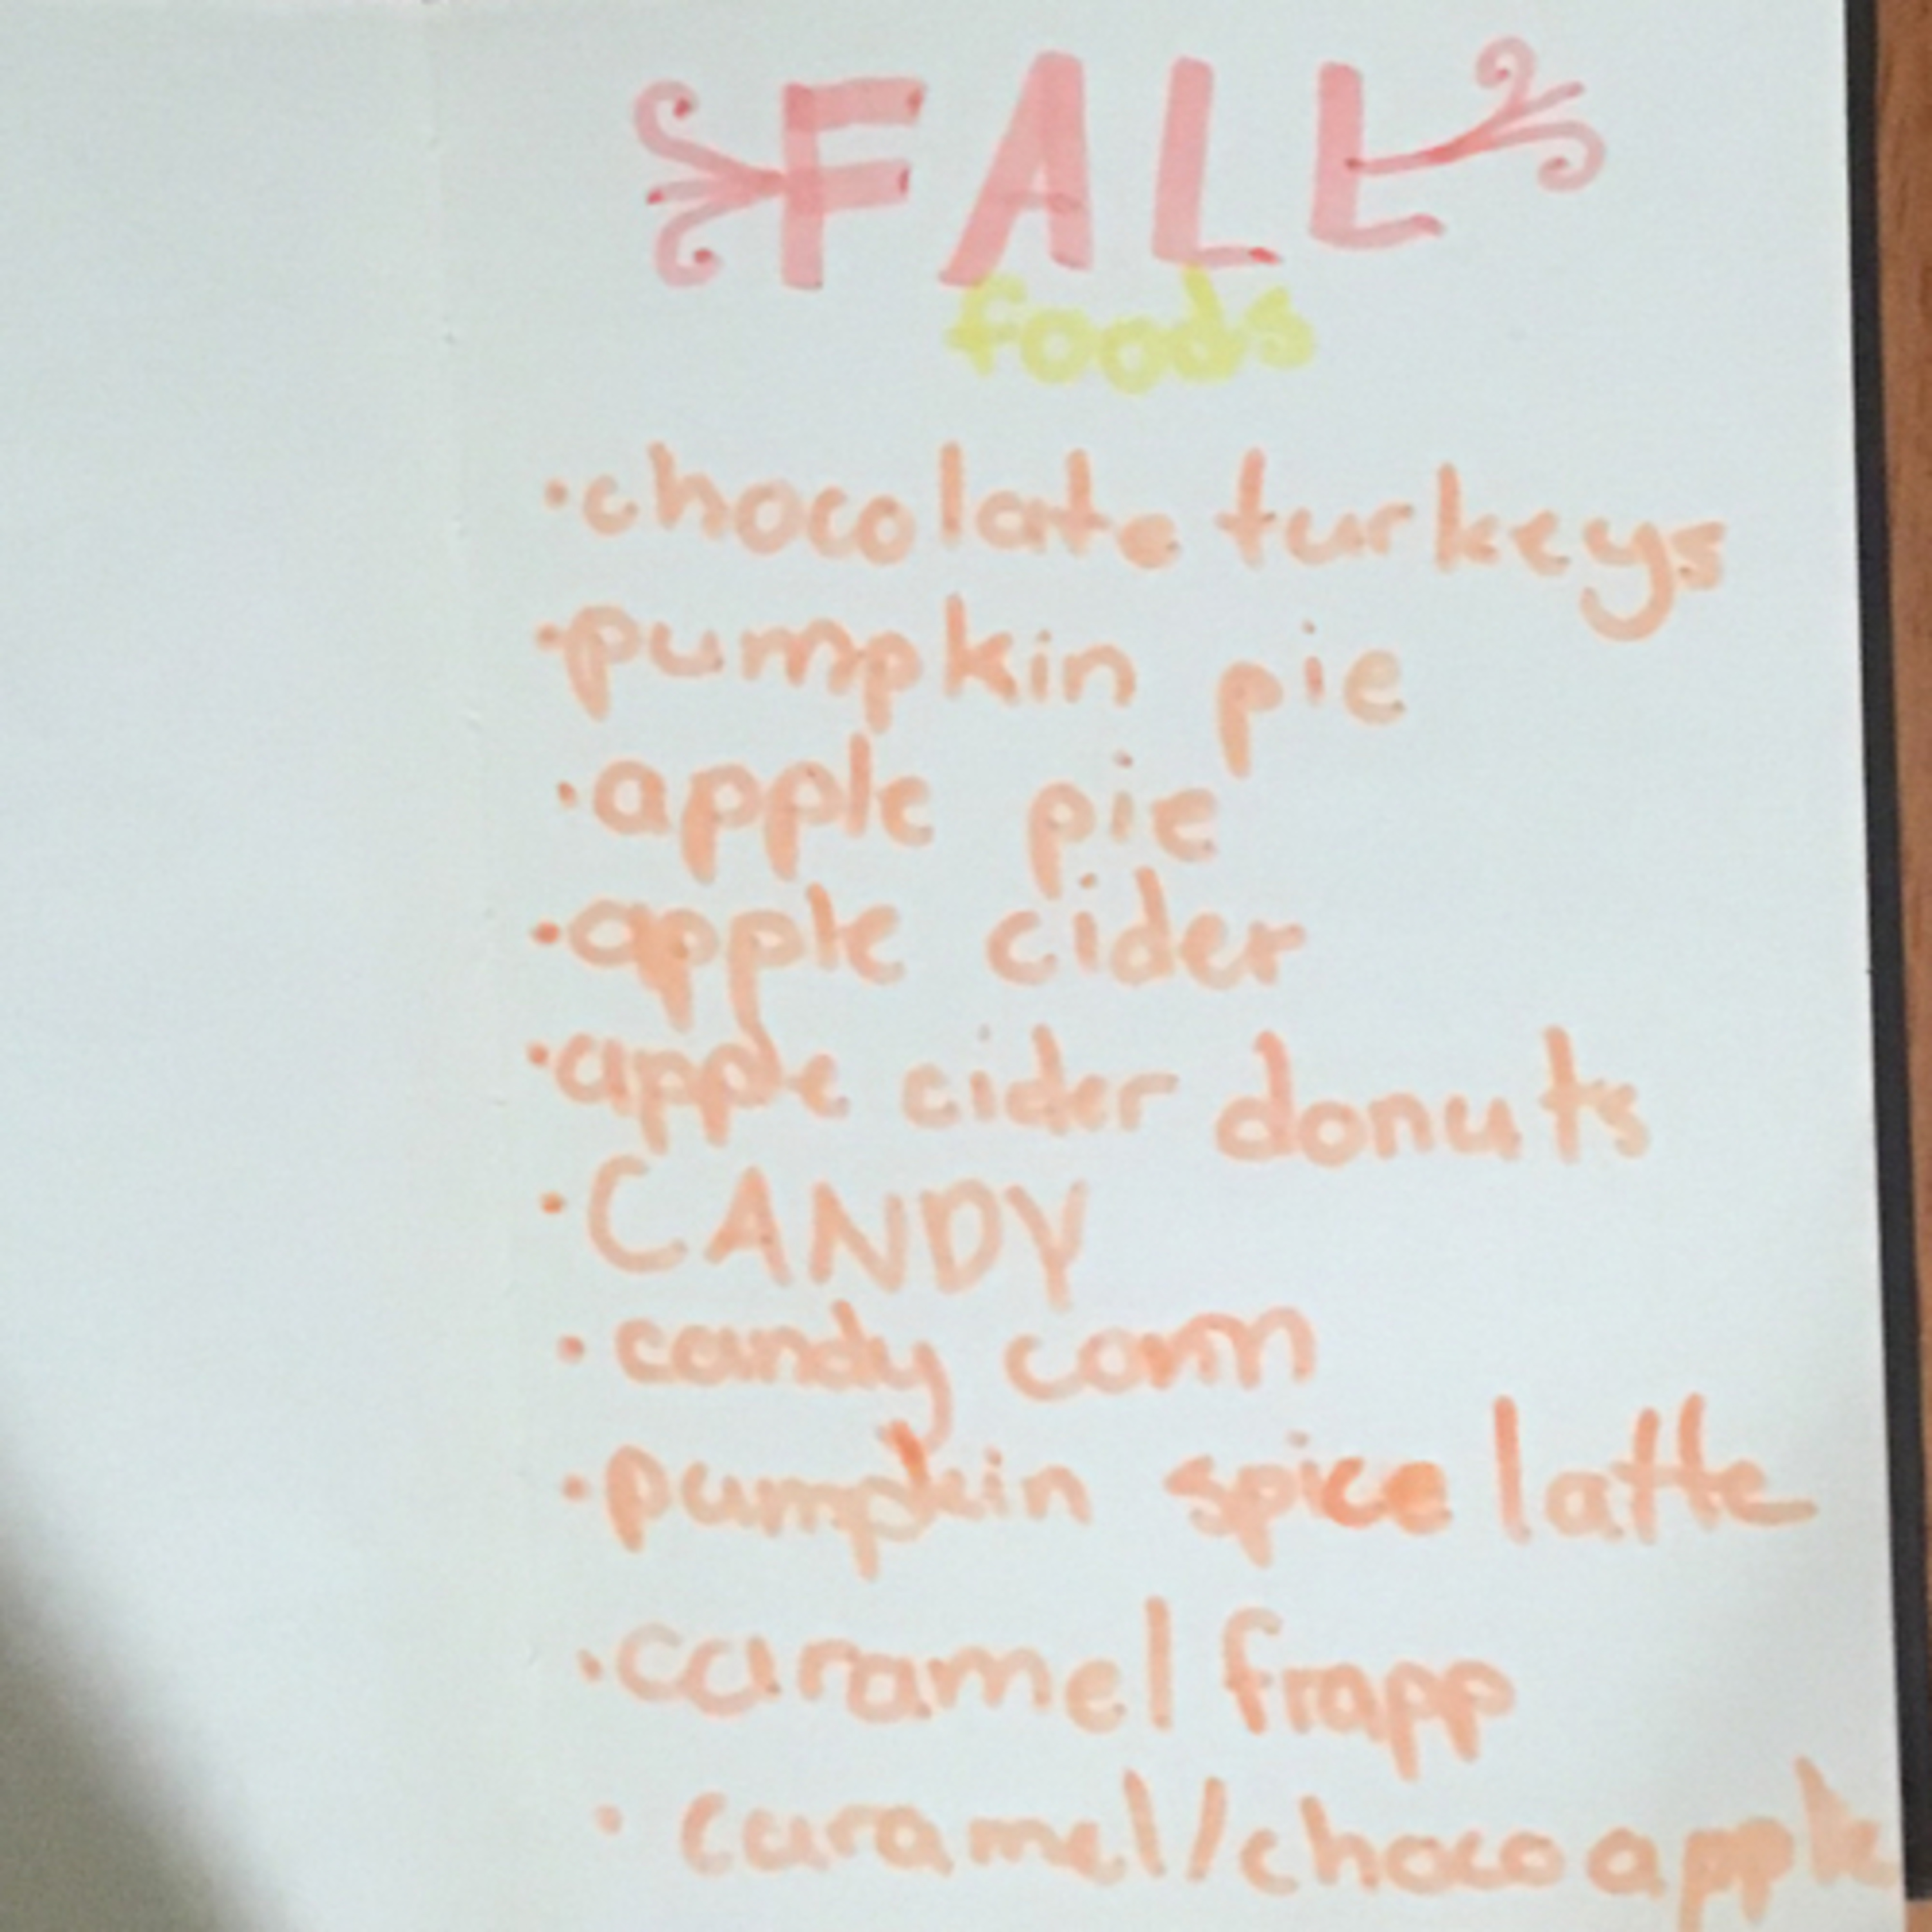 FALL
foods
·chocolate turkeys
·pumpkin pie
·apple pie
·apple cider
·apple cider donuts
·CANDY
·candy corn
·pumpkin spice latte
·caramel frapp
·caramel/choco apple